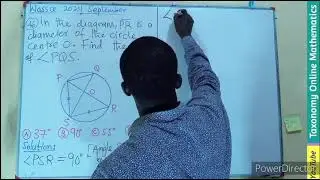 Wassce 2024 September
In the diagram, PR is a
diameter of the circle
centre O. Find the
of ∠PQS.
P
Q
S
R
Ⓐ 37° Ⓑ 90° Ⓒ 55°
Solutions
∠PSR = 90°
∠
Taxonomy Online Mathematics
YouTube
PowerDirector